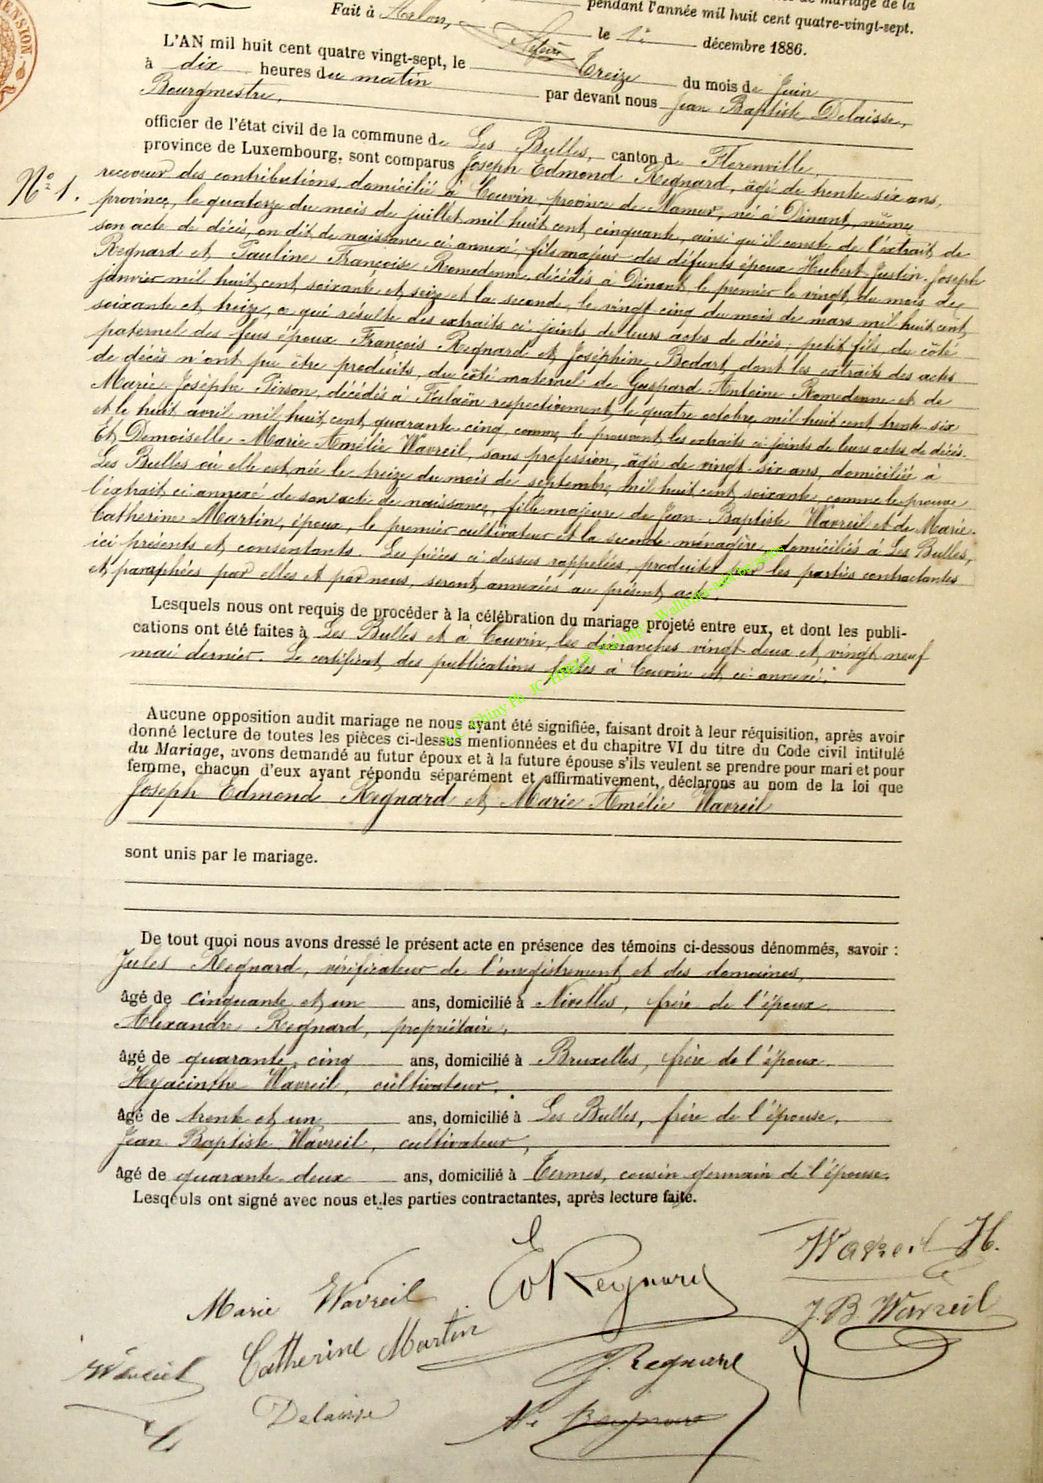 pendant l'année mil huit cent quatre-vingt-sept.
Fait à Arlon, le 1er décembre 1886.
L'AN mil huit cent quatre vingt-sept, le Treize du mois de Juin
à dix heures du matin par devant nous Jean Baptiste Delaisse,
Bourgmestre,
officier de l'état civil de la commune de Les Bulles, canton de Florenville,
province de Luxembourg, sont comparus Joseph Edmond Regnard, âgé de trente six ans,
N° 1.
receveur des contributions, domicilié à Couvin, province de Namur, né à Dinant, même
province, le quatorze du mois de juillet mil huit cent cinquante, ainsi qu'il conste de l'extrait de
son acte de décès, on dit, de naissance ci annexé, fils majeur des défunts époux Hubert Justin Joseph
Regnard et Pauline Françoise Romedenne, décédés à Dinant, le premier le vingt du mois de
janvier mil huit cent soixante et seize et la seconde, le vingt cinq du mois de mars mil huit cent
soixante et treize, ce qui résulte des extraits ci joints de leurs actes de décès; petit fils, du côté
paternel des feus époux François Regnard et Joséphine Bodart, dont les extraits des actes
de décès n'ont pu être produits, du côté maternel de Gaspard Antoine Romedenne et de
Marie Josèphe Pirson, décédés à Falaën respectivement le quatre octobre mil huit cent trente six
et le huit avril mil huit cent quarante cinq comme le prouvent les extraits ci joints de leurs actes de décès.
Et Demoiselle Marie Amélie Wavreil, sans profession, âgée de vingt six ans, domiciliée à
Les Bulles où elle est née le treize du mois de septembre mil huit cent soixante comme le prouve
l'extrait ci annexé de son acte de naissance, fille majeure de Jean Baptiste Wavreil et de Marie
Catherine Martin, époux, le premier cultivateur et la seconde ménagère, domiciliés à Les Bulles,
ici présents et consentants. Les pièces ci dessus rappelées, produites par les parties contractantes
et paraphées par elles et par nous, seront annexées au présent acte.
Lesquels nous ont requis de procéder à la célébration du mariage projeté entre eux, et dont les publi-
cations ont été faites à Les Bulles et à Couvin, les dimanches vingt deux et vingt neuf
mai dernier. Le certificat des publications faites à Couvin est ci annexé.
Aucune opposition audit mariage ne nous ayant été signifiée, faisant droit à leur réquisition, après avoir
donné lecture de toutes les pièces ci-dessus mentionnées et du chapitre VI du titre du Code civil intitulé
du Mariage, avons demandé au futur époux et à la future épouse s'ils veulent se prendre pour mari et pour
femme, chacun d'eux ayant répondu séparément et affirmativement, déclarons au nom de la loi que
Joseph Edmond Regnard et Marie Amélie Wavreil
sont unis par le mariage.
De tout quoi nous avons dressé le présent acte en présence des témoins ci-dessous dénommés, savoir :
Jules Regnard, vérificateur de l'enregistrement et des domaines,
âgé de cinquante et un ans, domicilié à Nivelles, frère de l'époux
Alexandre Regnard, propriétaire,
âgé de quarante cinq ans, domicilié à Bruxelles, frère de l'époux
Hyacinthe Wavreil, cultivateur,
âgé de trente et un ans, domicilié à Les Bulles, frère de l'épouse,
Jean Baptiste Wavreil, cultivateur,
âgé de quarante deux ans, domicilié à Termes, cousin germain de l'épouse.
Lesquels ont signé avec nous et les parties contractantes, après lecture faite.
Wavreil H.
Marie Wavreil Ed Regnard
J. B Wavreil
Catherine Martin
Wavreil J. Regnard
Delaisse Al. Regnard